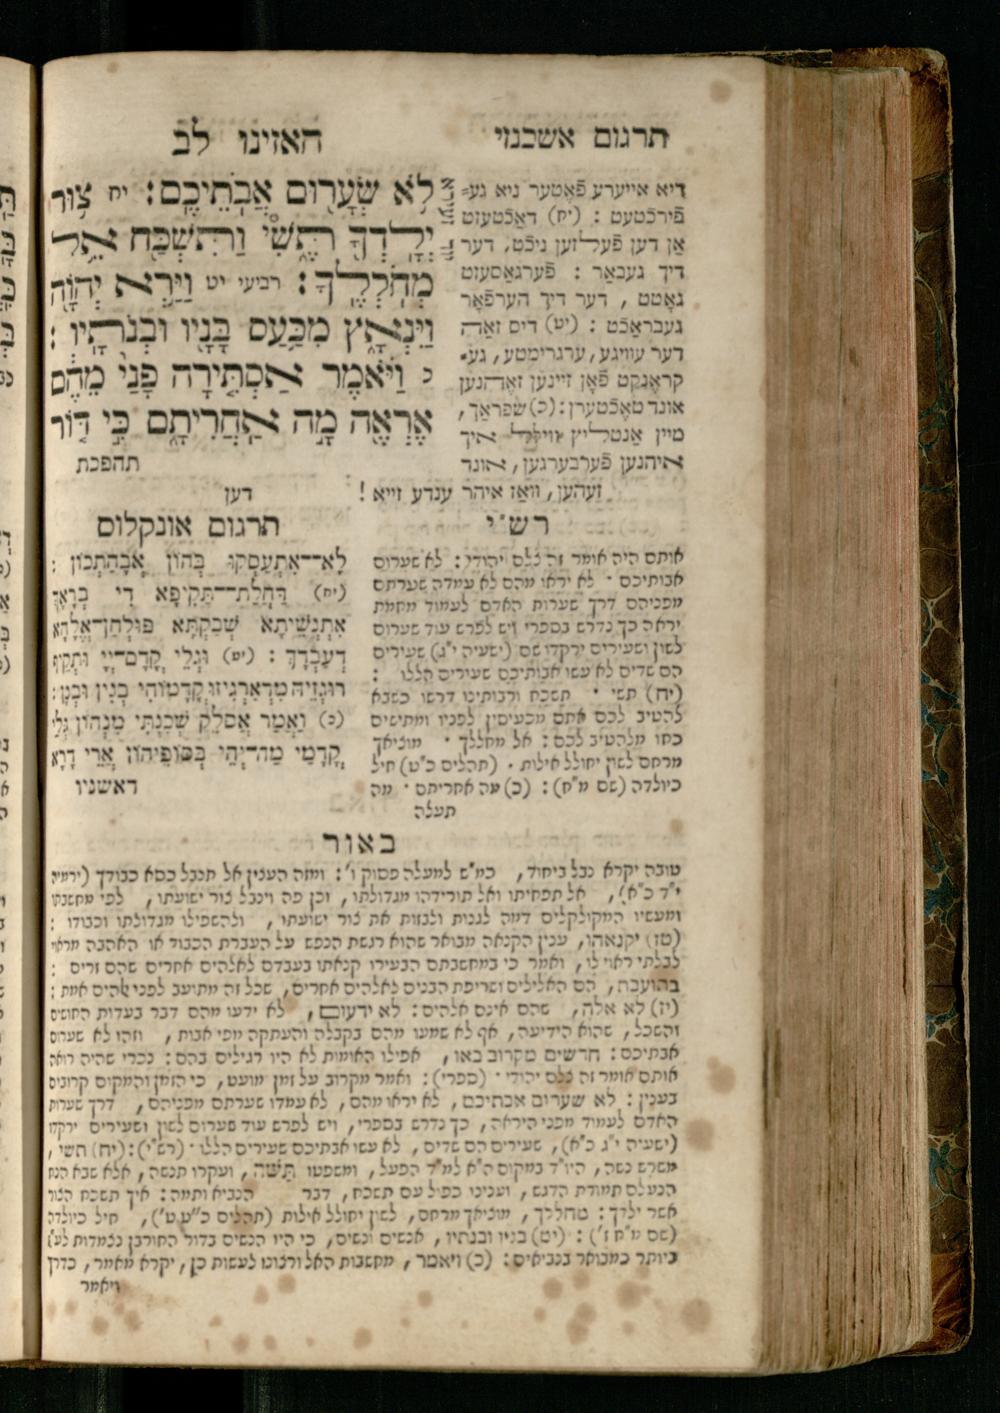 תרגום אשכנזי
האזינו לב
לֹא שְׂעָרוּם אֲבֹתֵיכֶם: יח צוּר
יְלָדְךָ תֶּשִׁי וַתִּשְׁכַּח אֵל
מְחֹלְלֶךָ: רביעי יט וַיַּרְא יְהוָֹה
וַיִּנְאָץ מִכַּעַס בָּנָיו וּבְנֹתָיו:
כ וַיֹּאמֶר אַסְתִּירָה פָנַי מֵהֶם
אֶרְאֶה מָה אַחֲרִיתָם כִּי דוֹר
תהפכת
דיא אייערע פֿאָטער ניא גע=
פֿירכֿטעט: (יח) דאַכֿטעזט
אָן דען פֿעלזען ניכֿט, דער
דיך געבאַר: פֿערגאַסעזט
גאָטט, דער דיך הערפֿאָר
געבראַכֿט: (יט) דיס זאַה
דער עוויגע, ערגרימטע, גע=
קראֶנקט פֿאָן זיינען זאָהנען
אונד טאָכֿטערן: (כ) שפראַך,
מיין אַנטליץ ווילל איך
איהנען פֿערבערגען, אונד
זעהען, וואַז איהר ענדע זייא!
דען
רש"י
אותם היה אומר זה כלם יהודי: לא שערום
אבותיכם · לא יראו מהם לא עמדה שערתם
מפניהם דרך שערות האדם לעמוד מחמת
יראה כך נדרש בספרי ויש לפרש עוד שערום
לשון ושעירים ירקדו שם (ישעיה י"ג) שעירים
הם שדים לא עשו אבותיכם שעירים הללו:
(יח) תשי · תשכח ורבותינו דרשו כשבא
להטיב לכם אתם מכעיסין לפניו ומתישים
כחו מלהטיב לכם: אל מחללך · מוציאך
מרחם לשון יחולל אילות. (תהלים כ"ט) חיל
כיולדה (שם מ"ח): (כ) מה אחריתם · מה
תעלה
תרגום אונקלוס
לָא־אִתְעַסָקוּ בְּהוֹן אֲבָהַתְכוֹן:
(יח) דַּחְלַת־תַּקִיפָא דִי בְרָאָךְ
אִתְנְשֵׁיתָא שְׁבַקְתָּא פּוּלְחַן־אֱלָהָא
דְעַבְדָךְ: (יט) וּגְלֵי קֳדָם־יְיָ וּתְקֵיף
רוּגְזֵיהּ מִדְּאַרְגִיזוּ קֳדָמוֹהִי בְּנִין וּבְנָן:
(כ) וַאֲמַר אֲסַלֵּק שְׁכִנְתִּי מִנְּהוֹן גְּלֵי
קֳדָמַי מַה־יְהֵי בְּסוֹפֵיהוֹן אֲרֵי דָרָא
דאשניו
באור
טובה יקרא נבל ביחוד, כמ"ש למעלה פסוק ו': ומזה הענין אל תנבל כסא כבודך (ירמיה
י"ד כ"א), אל תפחיתו ואל תורידהו מגדולתו, וכן פה וינבל צור ישועתו, לפי מחשבתו
ומעשיו המקולקלים דמה לגנות ולבזות את צור ישועתו, ולהשפילו מגדולתו וכבודו:
(טז) יקנאהו, ענין הקנאה מבואר שהוא רגשת הנפש על העברת הכבוד או האהבה מראוי
לבלתי ראוי לו, ואמר כי במחשבתם הבעירו קנאתו בעבדם לאלהים אחרים שהם זרים:
בתועבת, הם האלילים ושריפת הבנים לאלהים אחרים, שכל זה מתועב לפני אלהים אמת:
(יז) לא אלה, שהם אינם אלהים: לא ידעום, לא ידעו מהם דבר בעדות החושים
והשכל, שהוא הידיעה, אף לא שמעו מהם בקבלה והעתקה מפי אבות, וזהו לא שערום
אבתיכם: חדשים מקרוב באו, אפילו האומות לא היו רגילים בהם: נכרי שהיה רואה
אותם אומר זה כלם יהודי · (ספרי): ואמר מקרוב על זמן מועט, כי הזמן והמקום קרובים
בענין: לא שערום אבתיכם, לא יראו מהם, לא עמדו שערתם מפניהם, דרך שערות
האדם לעמוד מפני היראה, כך נדרש בספרי, ויש לפרש עוד שערום לשון ושעירים ירקדו
(ישעיה י"ג כ"א), שעירים הם שדים, לא עשו אבתיכם שעירים הללו · (רש"י): (יח) תשי,
משרש נשה, היו"ד במקום ה"א למ"ד הפעל, ומשפטו תַּשֶּׁה, ועקרו תנשה, אלא שבא הנח
הנעלם תמורת הדגש, וענינו כפול עם תשכח, דבר הנביא ותמה: איך תשכח הצור
אשר ילדך: מחללך, מוציאך מרחם, לשון יחולל אילות (תהלים כ"ט ט'), חיל כיולדה
(שם מ"ח ז'): (יט) בניו ובנתיו, אנשים ונשים, כי היו הנשים בדור החורבן נחמדות לע"ז
ביותר כמבואר בנביאים: (כ) ויאמר, מחשבות האל ורצונו לעשות כן, יקרא מאמר, כדרך
ויאמר